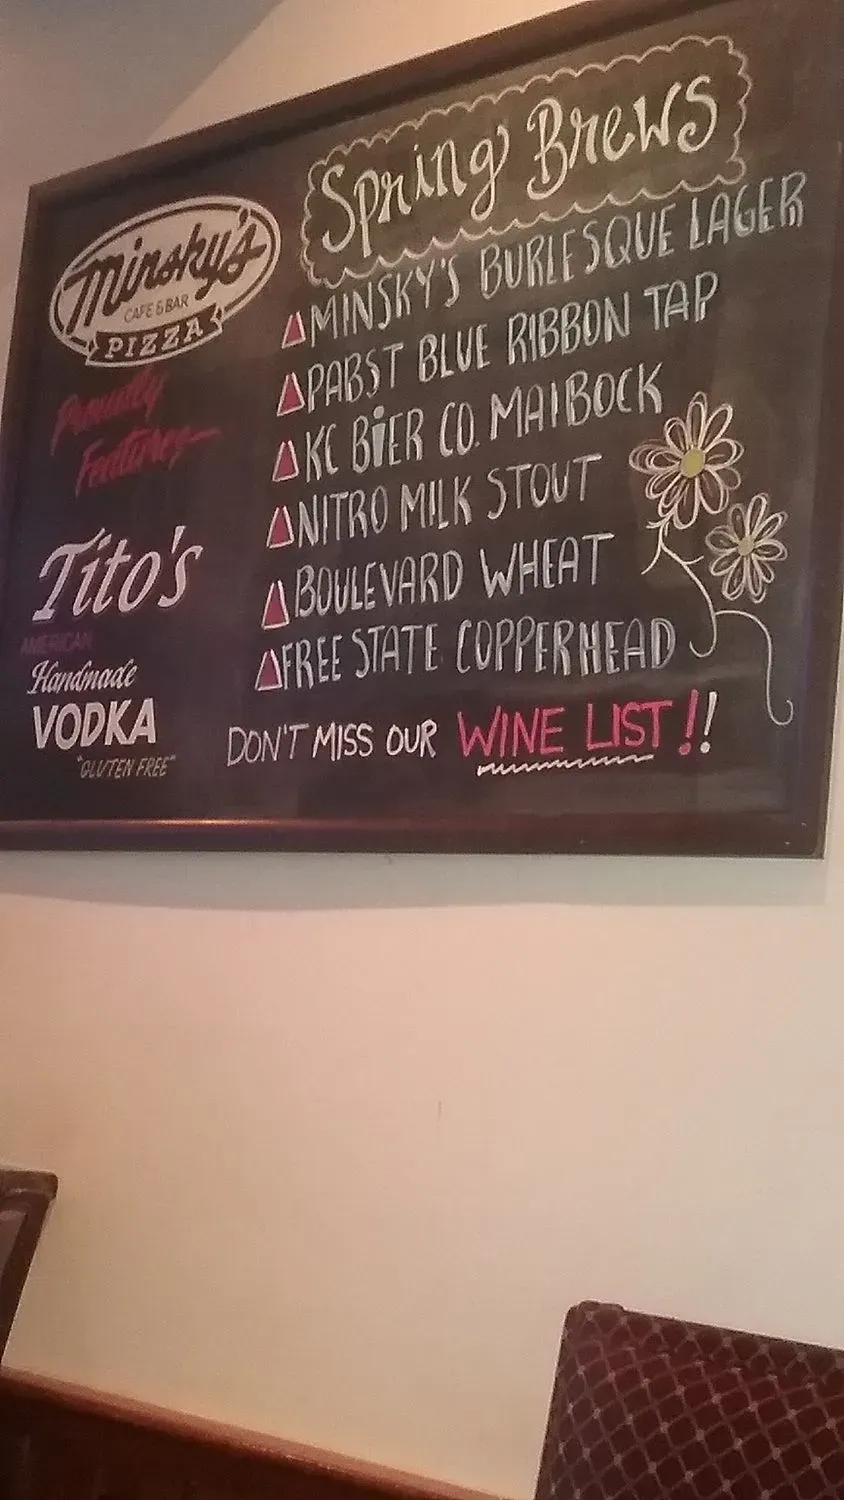 Minsky's
CAFE & BAR
PIZZA
Proudly
Features
Tito's
AMERICAN
Handmade
VODKA
"GLUTEN FREE"
Spring Brews
MINSKY'S BURLESQUE LAGER
PABST BLUE RIBBON TAP
KC BiER CO. MAIBOCK
NITRO MILK STOUT
BOULEVARD WHEAT
FREE STATE COPPERHEAD
DON'T MISS OUR WINE LIST!!